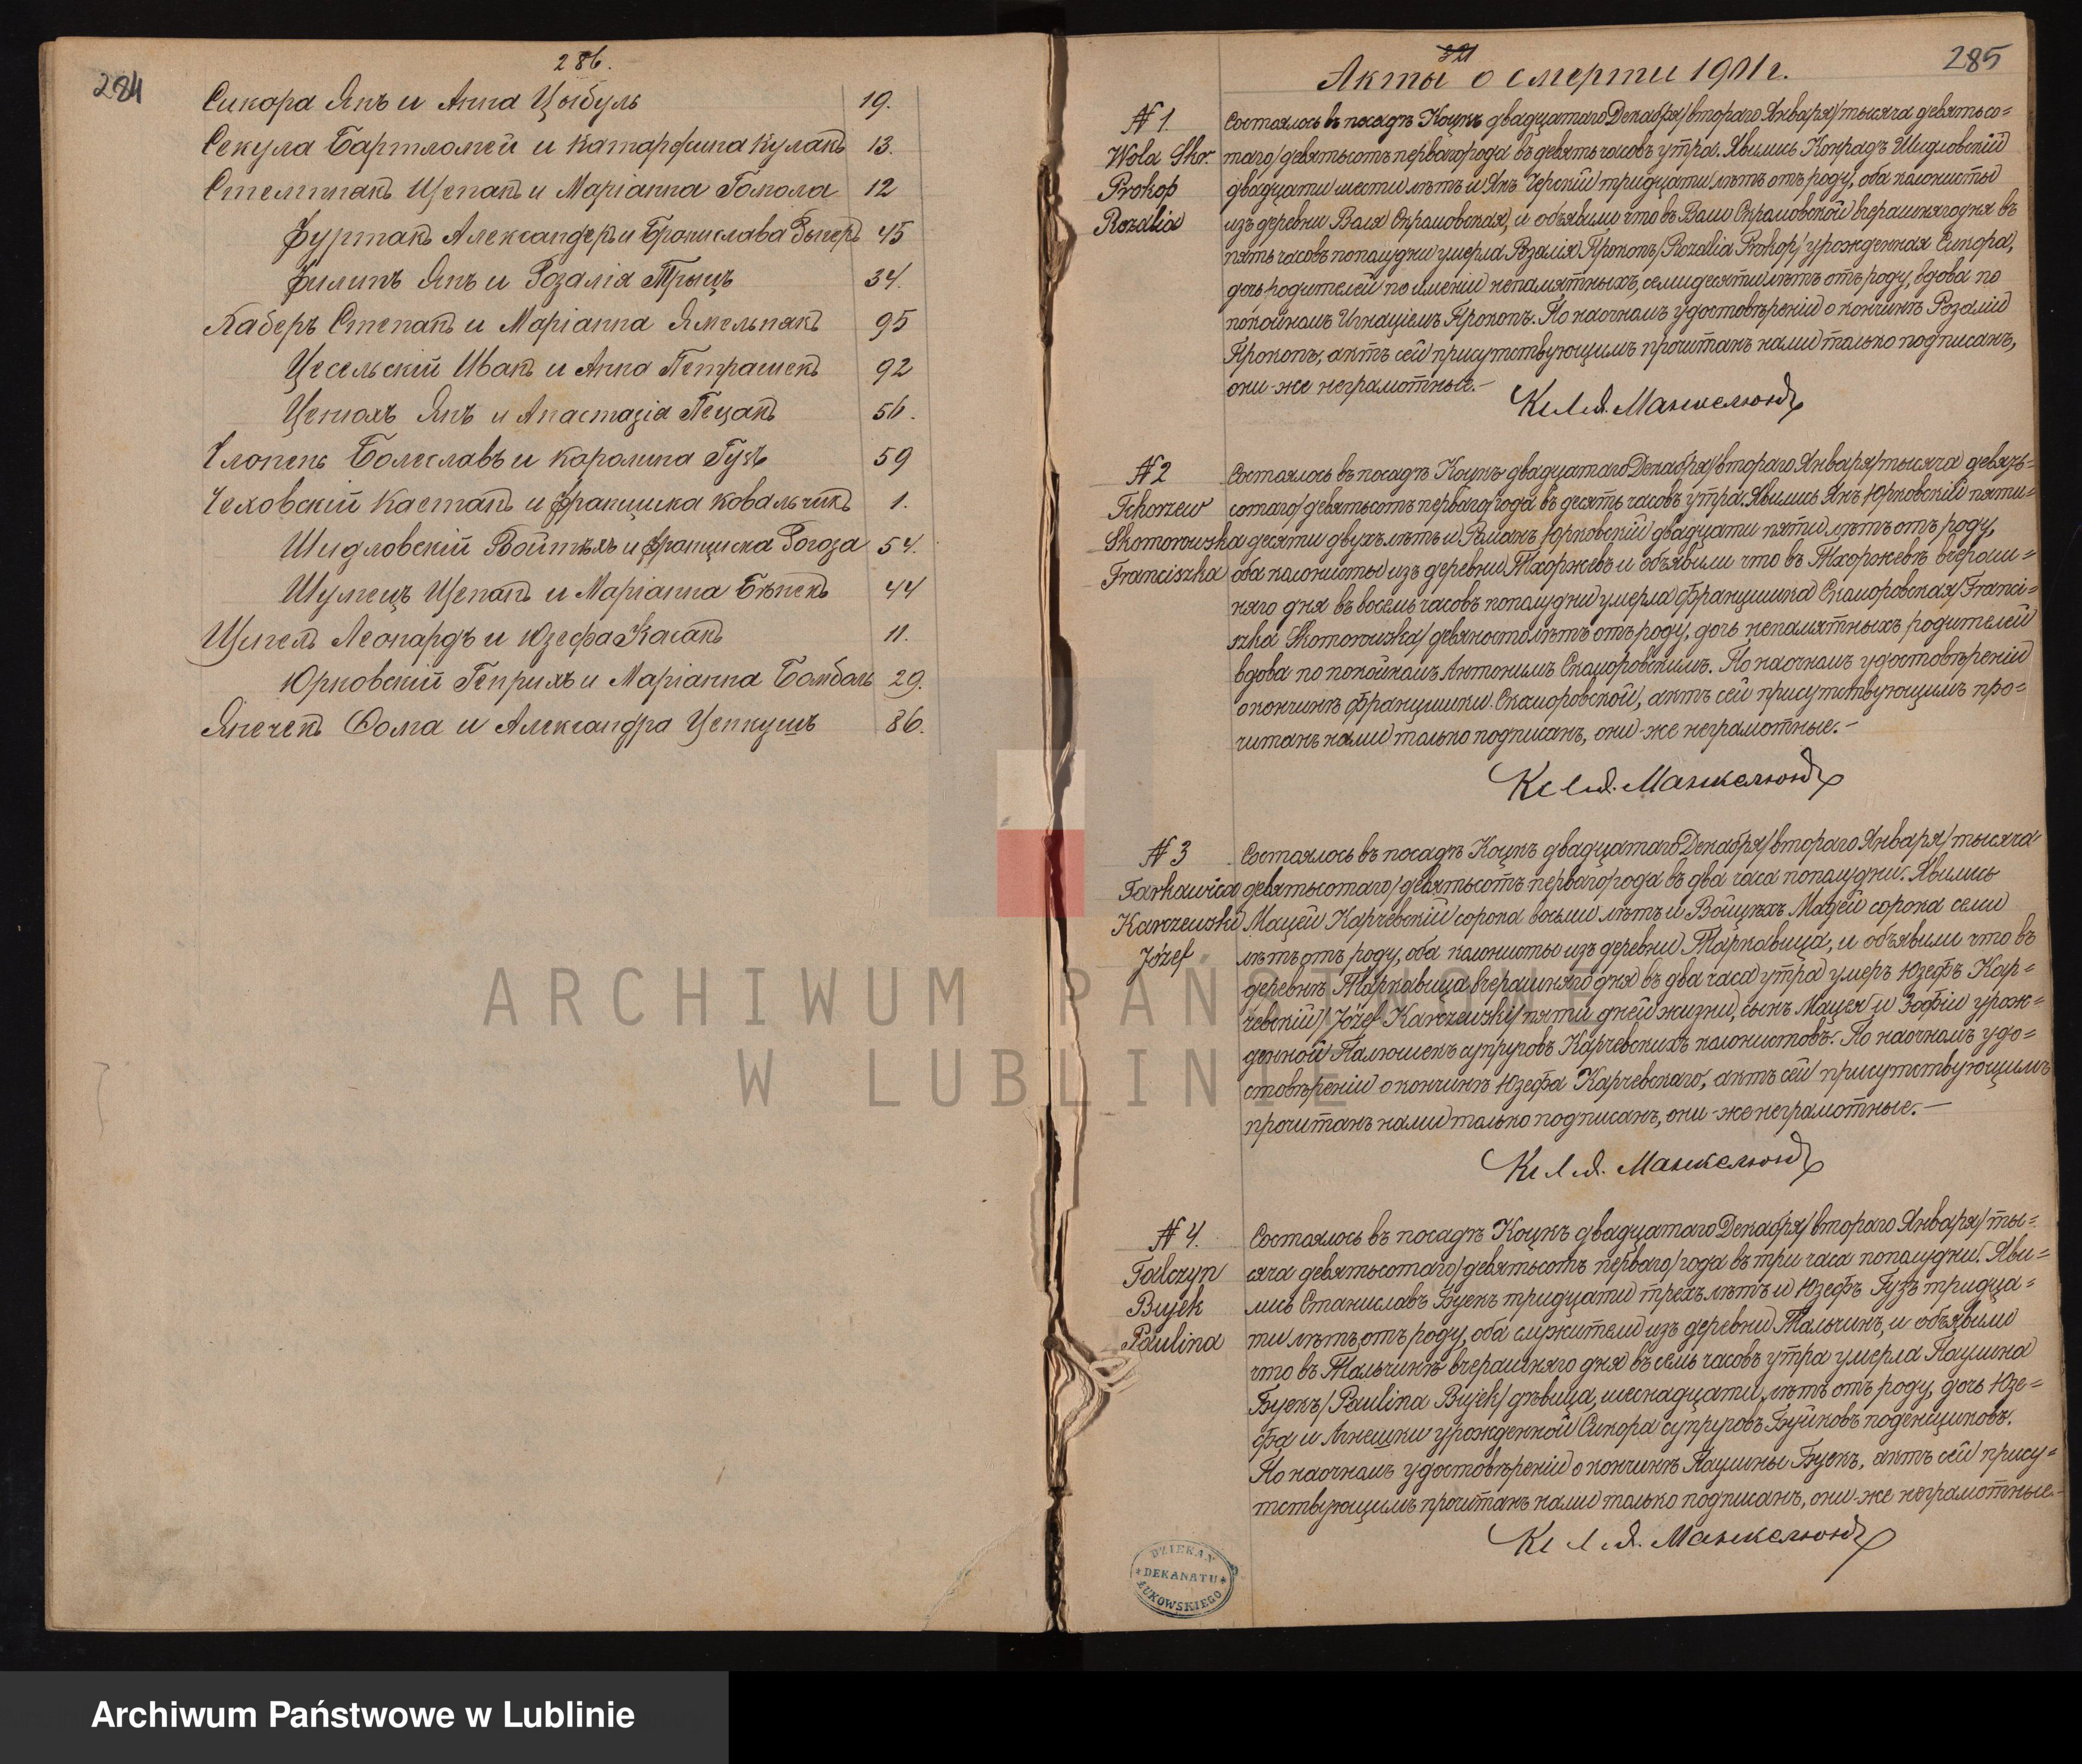 284
286.
Сикора Янъ и Анна Цыбуль 19.
Секула Бартломей и Катаржина Кулакъ 13.
Стельмакъ Щепанъ и Маріанна Гомола 12
Фуртакъ Александеръ и Брониславa 45
Филипъ Янъ и Розалія 34.
Хаберъ Степанъ и Маріанна Ямельнякъ 95
Цесельскій Иванъ и Анна Петрашекъ 92
Янъ и Анастазія Пецакъ 56.
Хлопекъ Болеславъ и Каролина Гузъ 59
Чеховскій Каетанъ и Францишка Ковальчикъ 1.
Шидловскій Войтѣхъ и Францишка Рогоза 54.
Шулецъ Щепанъ и Маріанна 44
Щигелъ Леонардъ и Юзефа 11.
Юрковскій Генрихъ и Маріанна Бомбаль 29.
Янечекъ Ѳома и Александра Ценкушъ 86.
321
285
Акты о смерти 1901 г.
№ 1.
Wola Sko.
Prokop
Rozalia
Состоялось въ посадѣ Коцкъ двадцатаго Декабря/втораго Января/тысяча девятьсо=
таго/девятьсотъ перваго/года въ девять часовъ утра. Явились Конрадъ Шидловскій
двадцати шести лѣтъ и Янъ Черскій тридцати лѣтъ отъ роду, оба колонисты
изъ деревни Воля Скромовская, и объявили что въ Воли Скромовской вчерашняго дня въ
пять часовъ пополудни умерла Розалія Прокопъ/Rozalia Prokop/урожденная Сикора,
дочь родителей по имени непамятныхъ, семидесяти лѣтъ отъ роду, вдова по
покойномъ Игнаціемъ Прокопъ. По наочномъ удостовѣреніи о кончинѣ Розаліи
Прокопъ, актъ сей присутствующимъ прочитанъ нами только подписанъ,
они-же неграмотные.-
№ 2
Tchorzew
Skomorowska
Franciszka
Состоялось въ посадѣ Коцкъ двадцатаго Декабря/втораго Января/тысяча девять=
сотаго/девятьсотъ перваго/года въ десять часовъ утра. Явились Янъ Юрковскій пяти=
десяти двухъ лѣтъ и Романъ Юрковскій двадцати пяти лѣтъ отъ роду,
оба колонисты изъ деревни Тхоржевъ и объявили что въ Тхоржевѣ вчераш=
няго дня въ восемь часовъ пополудни умерла Францишка Скоморовская/Franci=
szka Skomorowska/девяносто лѣтъ отъ роду, дочь непамятныхъ родителей
вдова по покойномъ Антонимъ Скоморовскимъ. По наочномъ удостовѣреніи
о кончинѣ Францишки Скоморовской, актъ сей присутствующимъ про=
читанъ нами только подписанъ, они-же неграмотные.-
№ 3
Tarkawica
Karczewski
Józef
Состоялось въ посадѣ Коцкъ двадцатаго Декабря/втораго Января/тысяча
девятьсотаго/девятьсотъ перваго/года въ два часа пополудни. Явились
Мацей Карчевскій сорока восьми лѣтъ и Войцѣхъ Мадей сорока семи
лѣтъ отъ роду, оба колонисты изъ деревни Таркавица, и объявили что въ
деревнѣ Таркавица вчерашняго дня въ два часа утра умеръ Юзефъ Кар=
чевскій/Józef Karczewski/пяти дней жизни, сынъ Мацея и Зофіи урож=
денной Палюшекъ супруговъ Карчевскихъ колонистовъ. По наочномъ удо=
стовѣреніи о кончинѣ Юзефа Карчевскаго, актъ сей присутствующимъ
прочитанъ нами только подписанъ, они-же неграмотные.-
№ 4.
Talczyn
Bujek
Paulina
Состоялось въ посадѣ Коцкъ двадцатаго Декабря/втораго Января/ты=
сяча девятьсотаго/девятьсотъ перваго/года въ три часа пополудни. Яви=
лись Станиславъ Буекъ тридцати трехъ лѣтъ и Юзефъ Гузъ тридца=
ти лѣтъ отъ роду, оба служители изъ деревни Тальчинъ, и объявили
что въ Тальчинѣ вчерашняго дня въ семь часовъ утра умерла Паулина
Буекъ/Paulina Bujek/дѣвица, шеснадцати лѣтъ отъ роду, дочь Юзе=
фа и Агнешки урожденной Сикора супруговъ Буйковъ поденщиковъ.
По наочномъ удостовѣреніи о кончинѣ Паулины Буекъ, актъ сей прису=
тствующимъ прочитанъ нами только подписанъ, они-же неграмотные.
DZIEKAN
DEKANATU
ŁUKOWSKIEGO
ARCHIWUM PAŃSTWOWE
W LUBLINIE
Archiwum Państwowe w Lublinie